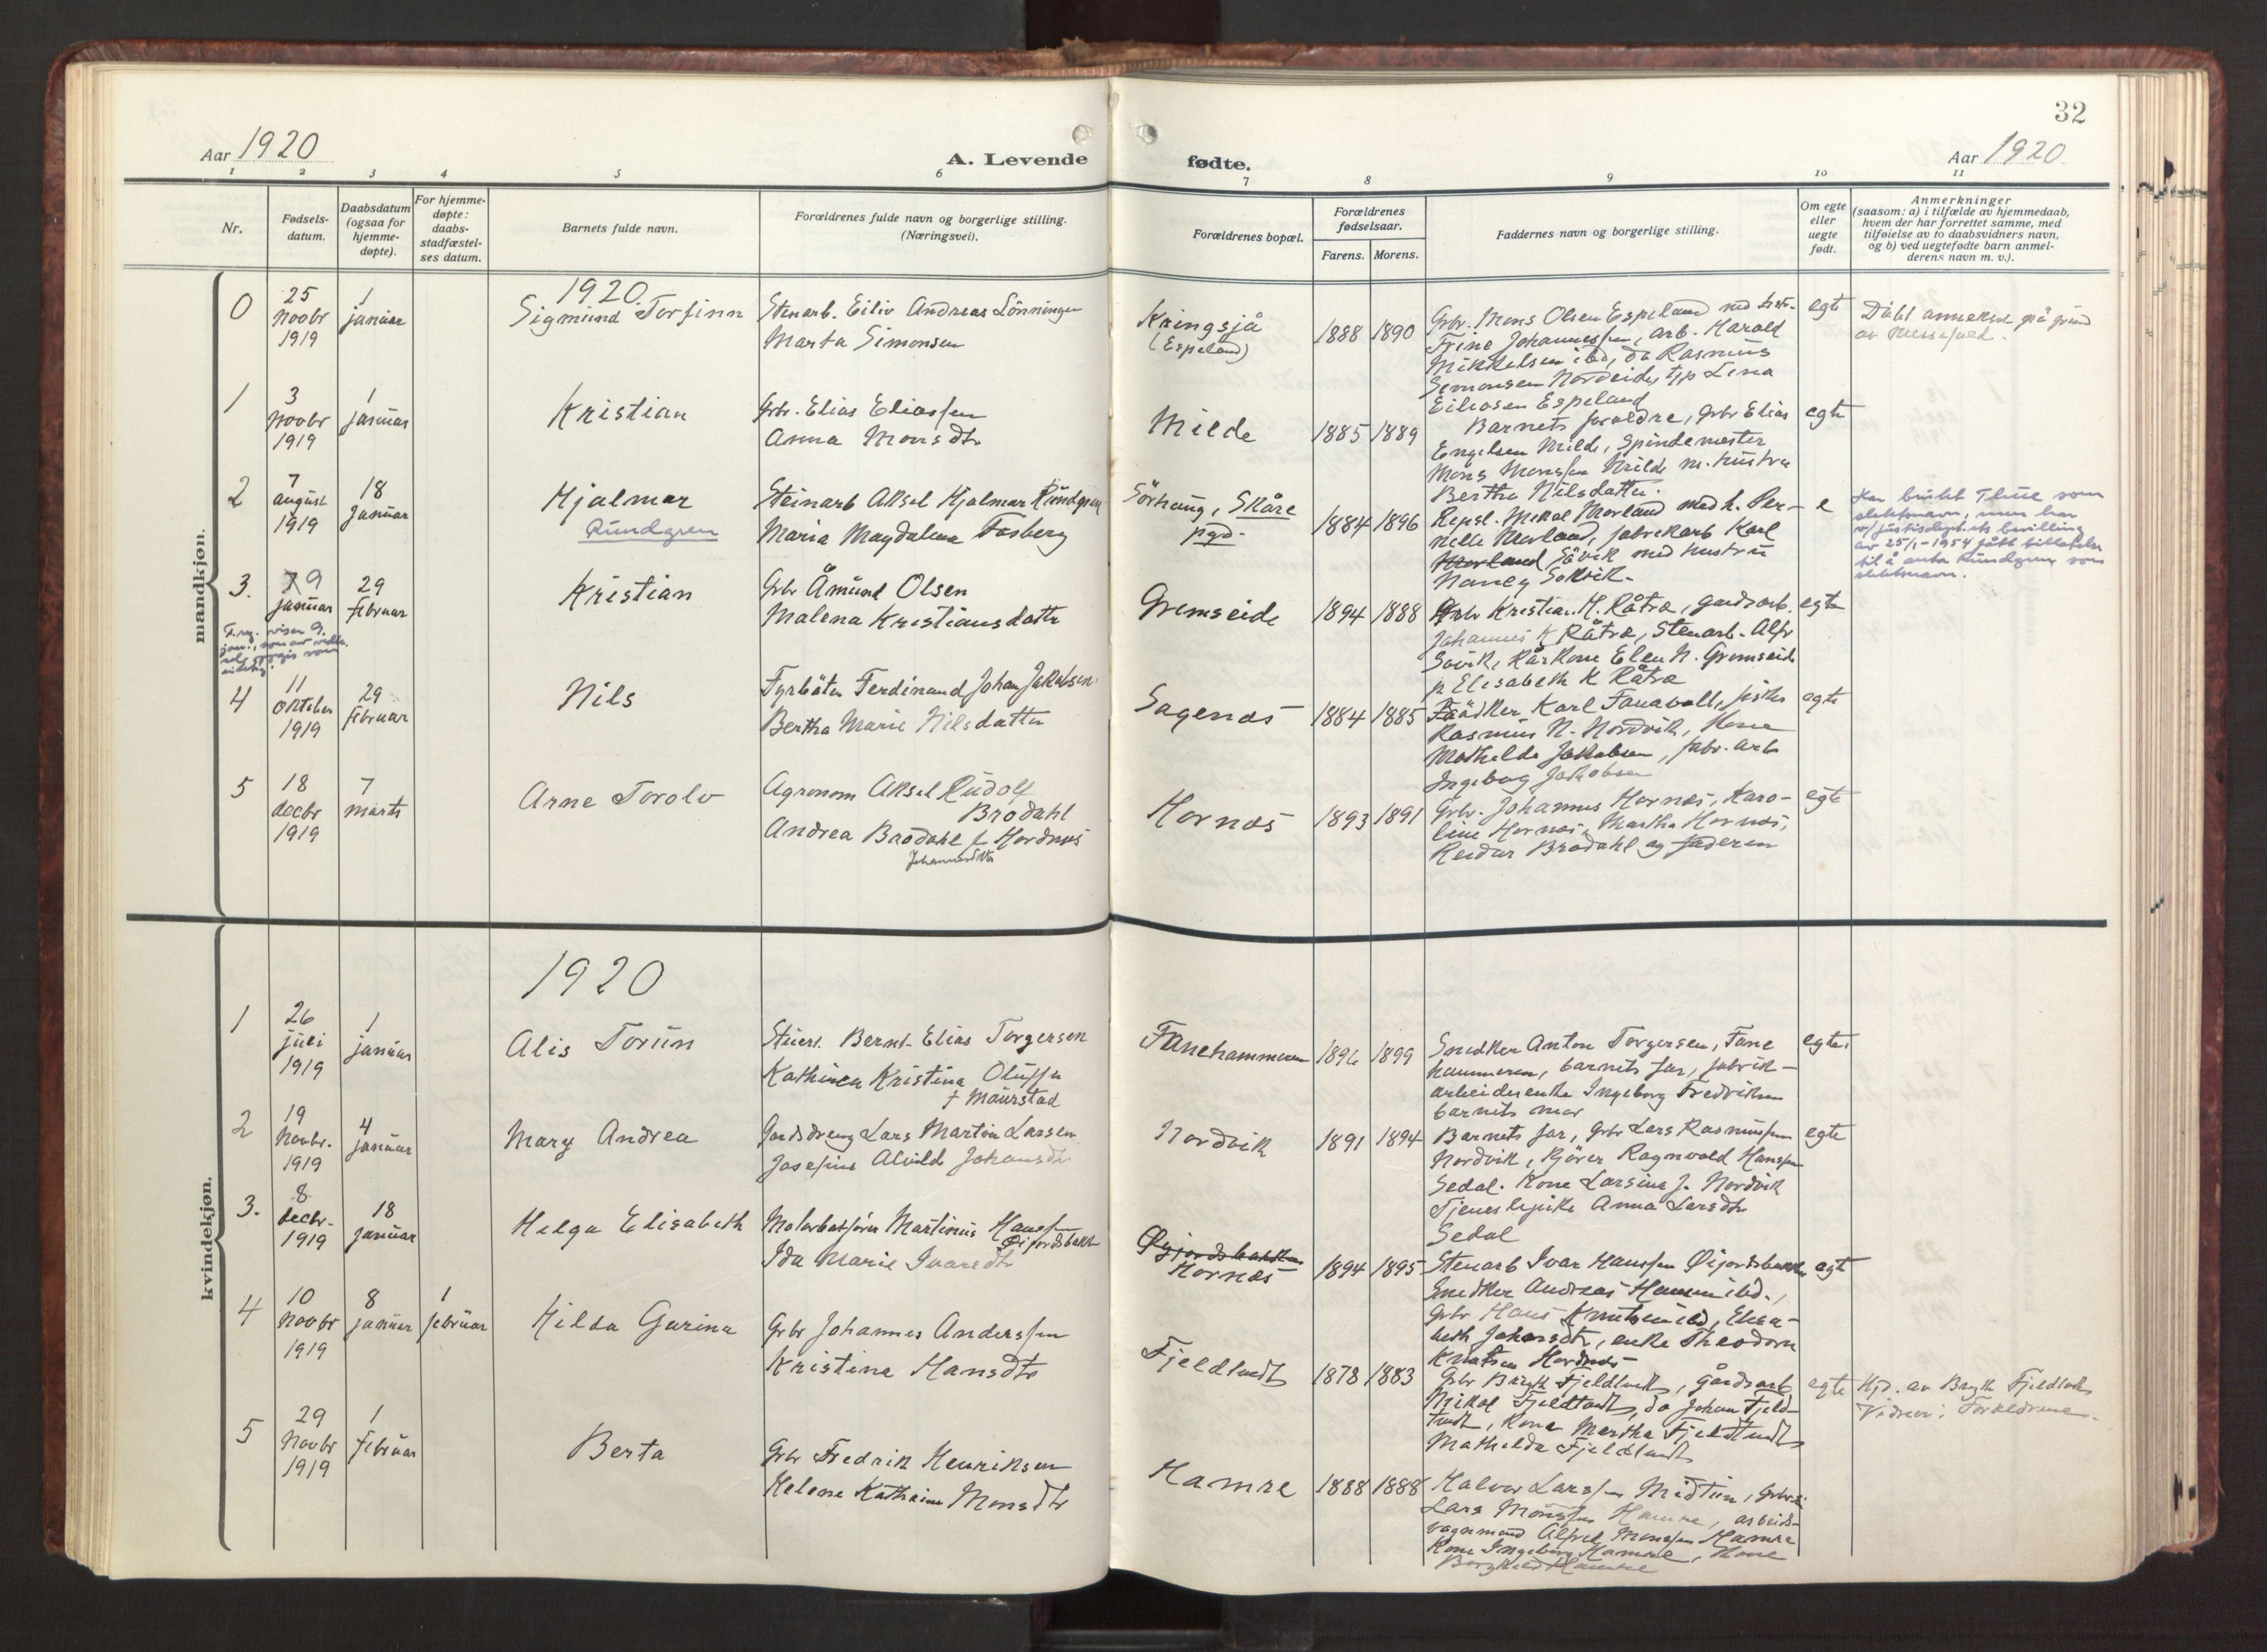 32
Aar 1920
A. Levende
fødte.
Aar 1920
1 2 3 4 5 6 7 8 9 10 11
Nr.
Fødsels-
datum.
Daabsdatum
(ogsaa for
hjemme-
døpte).
For hjemme-
døpte:
daabs-
stadfæstel-
ses datum.
Barnets fulde navn.
Forældrenes fulde navn og borgerlige stilling.
(Næringsvei).
Forældrenes bopæl.
Forældrenes
fødselsaar.
Farens. Morens.
Faddernes navn og borgerlige stilling.
Om egte
eller
uegte
født.
Anmerkninger
(saasom: a) i tilfælde av hjemmedaab,
hvem der har forrettet samme, med
tilføielse av to daabsvidners navn,
og b) ved uegtefødte barn anmel-
derens navn m. v.).
mandkjøn.
1920
0
25
Novbr
1919
1
januar
Sigmund Torfinn
Stenarb. Eiliv Andreas Lönningen
Marta Simonsen
Kringsjå
(Espeland)
1888 1890
Grbr. Mons Olsen Espeland med hustr.
Trine Johannessen, arb. Harald
Mikkelsen ibd, do Rasmus
Simonsen Nordeide, tjp Lina
Eilivsen Espeland
egte
på grund
1
3
Novbr
1919
1
januar
Kristian
Grbr. Elias Eliassen
Anna Monsdtr
Milde
1885 1889
Barnets foraldre, Grbr Elias
Engelsen Milde, Spindemester
Mons Monssen Milde m. hustru
Bertha Nilsdatter.
egte
2
7
august
1919
18
januar
Hjalmar
Rundgren
Steinarb Aksel Hjalmar Rundgren
Maria Magdalena Fosberg
Sörhaug, Skåre
pgd.
1884 1896
Repsl. Mikal Morland med h. Per-
nelle Morland, fabrikarb Karl
Morland Sövik med hustru
Nancy Sövik
e
Har brukt Thue som
slektsnavn, men har
v/justisdept.ets bevilling
av 25/1-1954 fått tillatelse
til å anta Rundgren som
slektsnavn.
3.
7 9
januar
29
februar
Kristian
Grbr Åmund Olsen
Malena Kristiansdatter
F.reg. viser 9.
Grimseide
1894 1888
Grbr Kristian M. Råtræ, gardsarb.
Johannes K Råtræ, Stenarb. Alfr
Sövik, Kårkone Elen N. Grimseid
p Elisabeth K Råtræ
egte
4
11
oktober
1919
29
februar
Nils
Fyrböter Ferdinand Johan Jakobsen
Bertha Marie Nilsdatter
Sagenæs
1884 1885
Bödker Karl Fanavoll, fisker
Rasmus N. Nordvik, Kone
Mathilde Jakobsen, fabr. arb
Ingeborg Jakobsen
egte
5
18
decbr
1919
7
marts
Arne Torolv
Agronom Aksel Rudolf
Brodahl
Andrea Brodahl f. Hordnæs
Johannesdtr
Hornæs
1893 1891
Grbr. Johannes Hornæs, Karo-
line Hornæs, Martha Hornæs,
Reidar Brodahl og faderen
egte
kvindekjøn.
1920
1
26
juli
1919
1
januar
Alis Torun
Bernt Elias Torgersen
Kathinca Kristina Olufsen
f Maurstad
Fanehammeren
1896 1899
Snedker Anton Torgersen, Fane
hammeren, barnets far, fabrik-
arbeiderenke Ingeborg Fredriksen
barnets mor
egte
2
19
Novbr.
1919
4
januar
Mary Andrea
Gardsdreng Lars Martin Larsen
Josefine Alvilde Johansdtr
Nordvik
1891 1894
Barnets far, Grbr Lars Rasmussen
Nordvik, Kjörer Ragnvald Hanssen
Sedal. Kone Larsine J. Nordvik
Tjenestepike Anna Larsdtr
Sedal
egte
3.
8
decbr.
1919
18
januar
Helga Elisabeth
Motorbatförer Martinus Hanssen
Øijordsbakk
Ida Marie Ivarsdtr
Øijordsbakken
Hornæs
1894 1895
Stenarb Ivar Hanssen Øijordsbakken
Snedker Andreas Hansen ibd.,
Grbr Hans Knutsen ibd, Elisa-
beth Johansdtr, enke Theodora
Knutsen Hordnæs
egte
4
10
Novbr
1919
8
januar
1
februar
Hilda Gurina
Grbr Johannes Anderssen
Kristina Hansdtr
Fjeldtudt
1878 1883
Grbr Fjeldtudt, gårdsarb
Mikal Fjeldtudt, do Johan Fjeld-
tudt, Kone Martha Fjeldtudt
Mathilde Fjeldtudt
egte
Hjd. av Fjeldtudt
Vidner: Forældrene.
5
29
Novbr
1919
1
februar
Berta
Grbr Fredrik Henriksen
Helene Kathrine Monsdtr
Hamre
1888 1888
Halvor Larssen Midtun, Grbr
Lars Monssen Hamre, arbeids-
vognmand Alfred Monssen Hamre
Kone Ingeborg Hamre, Kone
Borghild Hamre